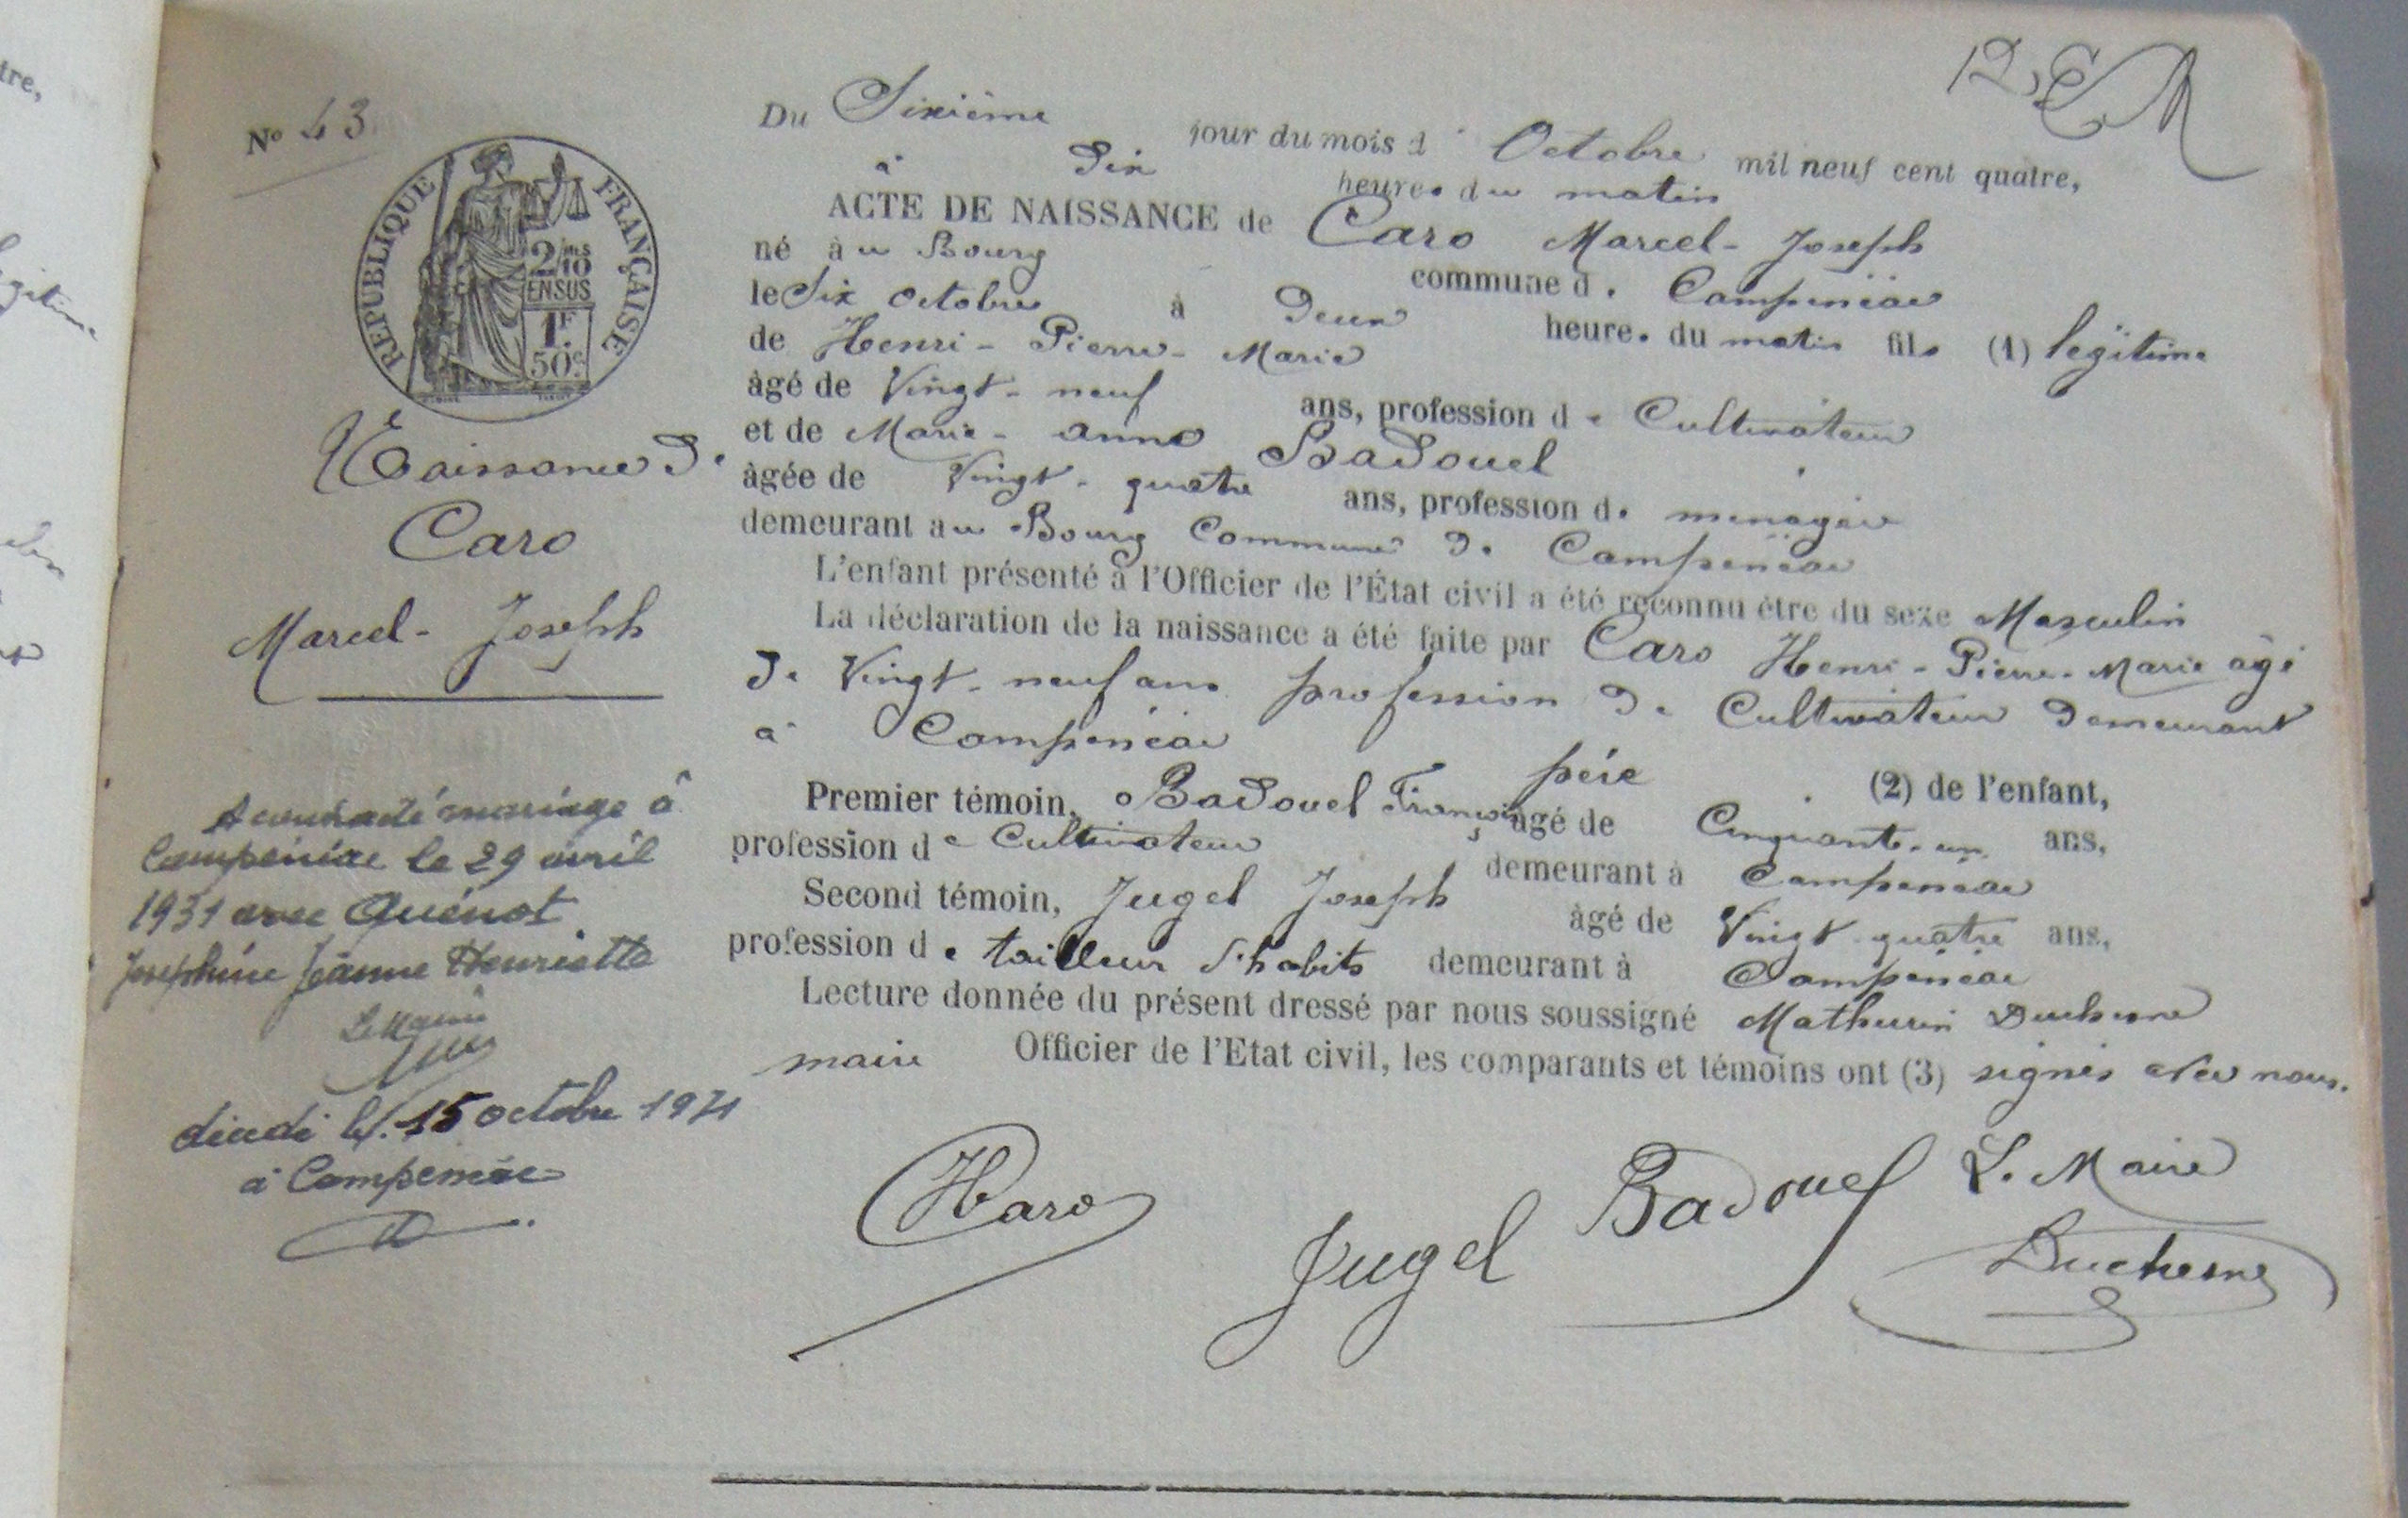 tre,
12, 
Nº 43
RÉPUBLIQUE FRANÇAISE
2/10 EN SUS
1F.
50c.
Naissance de
Caro
Marcel-Joseph
A contracté mariage à
Campénéac le 29 avril
1931 avec Quénot
Joséphine Jeanne Henriette
Le Maire
décédé le 15 octobre 1971
à Campénéac
Du Sixième jour du mois d' Octobre mil neuf cent quatre,
à Dix heures du matin
ACTE DE NAISSANCE de Caro Marcel-Joseph
né au Bourg commune de Campénéac
le Six octobre à Deux heures du matin fils (1) légitime
de Henri-Pierre-Marie
âgé de Vingt-neuf ans, profession de Cultivateur
et de Marie-Anne Badouel
âgée de Vingt-quatre ans, profession de ménagère
demeurant au Bourg Commune de Campénéac
L'enfant présenté à l'Officier de l'État civil a été reconnu être du sexe Masculin
La déclaration de la naissance a été faite par Caro Henri-Pierre-Marie âgé
de Vingt-neuf ans profession de Cultivateur demeurant
à Campénéac père (2) de l'enfant,
Premier témoin, Badouel François âgé de Cinquante-un ans,
profession de Cultivateur demeurant à Campénéac
Second témoin, Jugel Joseph âgé de Vingt-quatre ans,
profession de tailleur d'habits demeurant à Campénéac
Lecture donnée du présent dressé par nous soussigné Mathurin Duchesne
maire Officier de l'Etat civil, les comparants et témoins ont (3) signés avec nous.
HCaro Jugel Badouel Le Maire
Duchesne